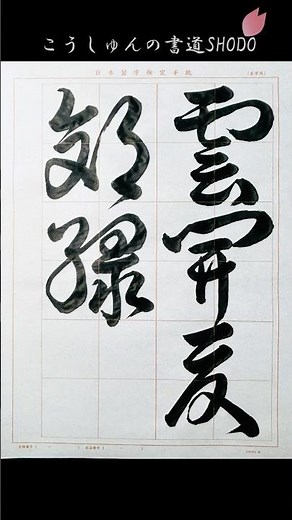 こうしゅんの書道SHODO
雲開夏
郊緑